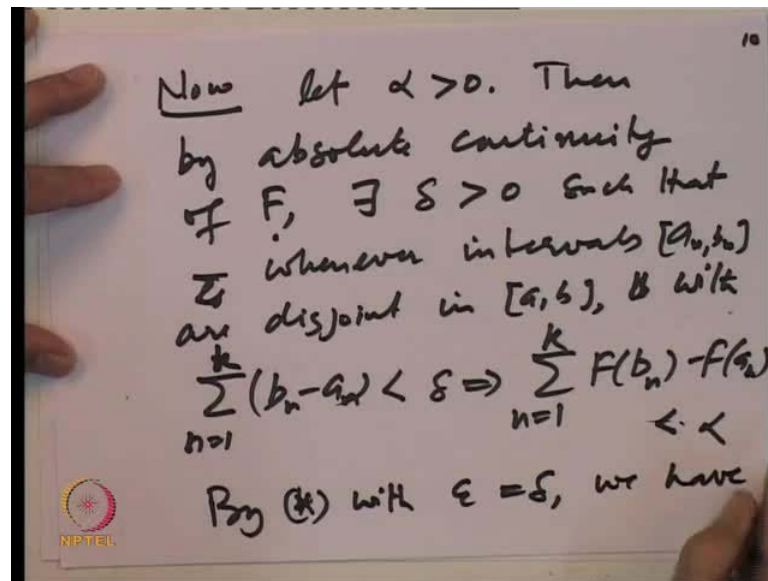 10
Now let α > 0. Then
by absolute continuity
of F, ∃ δ > 0 such that
whenever intervals [aₙ, bₙ]
are disjoint in [a, b], with
k k
∑ (bₙ - aₙ) < δ ⇒ ∑ F(bₙ) - F(aₙ)
n=1 n=1 < α
By (*) with ε = δ, we have
NPTEL